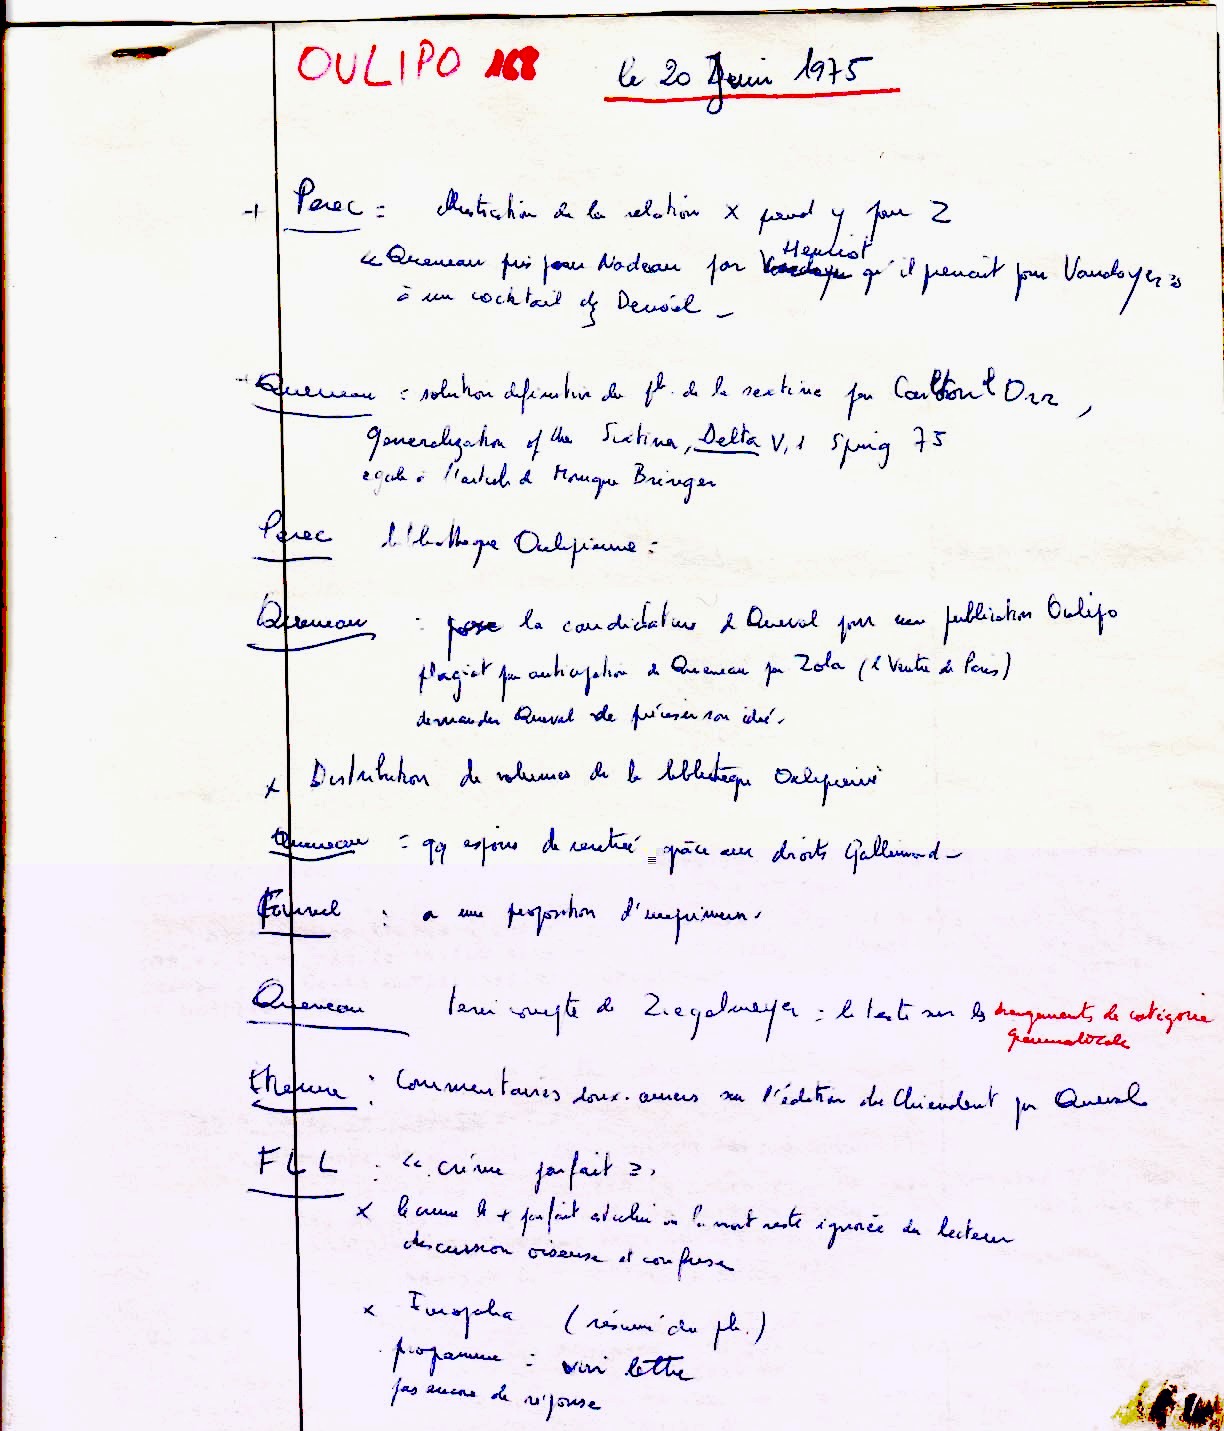 OULIPO 168 le 20 Juin 1975
+ Perec = illustration de la relation X prend y pour Z
Henriot
« Queneau pris pour Nadeau par qu'il prenait pour Vaudoyer »
à un cocktail chez Denoël –
Queneau = solution définitive du pb. de la sextine par Orr,
Generalization of the Sestina, Delta V, 1 Spring 75
égale à l'article de Monique Bringer
Perec bibliothèque Oulipienne =
Queneau : pose la candidature de Queval pour une publication Oulipo
plagiat par anticipation de Queneau par Zola (le Ventre de Paris)
demander Queval de préciser son idée.
x Distribution de volumes de la bibliothèque Oulipienne
Queneau = qq espoirs de rentrée grâce aux droits Gallimard –
Fournel : a une proposition d'imprimeur.
Queneau Ziegelmeyer = le texte sur les changements de catégorie
grammaticale
Etienne : Commentaires doux-amers sur l'édition du Chiendent par Queval
FLL : « crime parfait ».
x le crime le + parfait est celui où la mort reste ignorée du lecteur
discussion oiseuse et confuse
x Europalia (résumé du pb.)
programme = voir lettre
pas encore de réponse